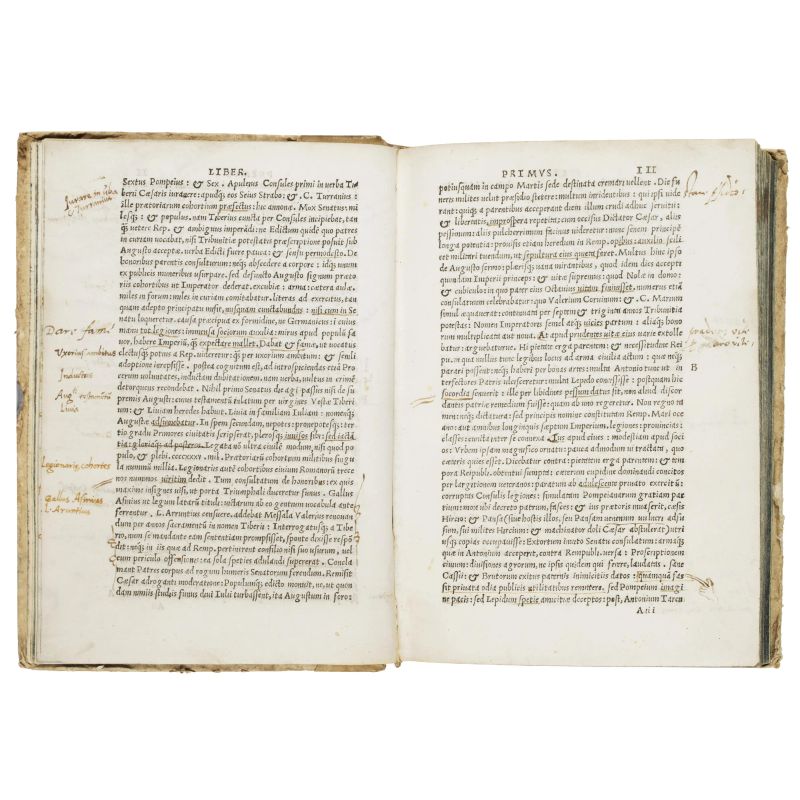 LIBER.
Sextus Pompeius: & Sex. Apuleius Consules primi in verba Ti
berii Cæsaris iurauere: apudq; eos Seius Strabo: & C. Turranius:
ille prætoriarum cohortium præfectus: hic annonæ. Mox Senatus: mi
lesq; & populus. nam Tiberius cuncta per Consules incipiebat, tan
q̃ vetere Rep. & ambiguus imperãdi: ne Edictum quidẽ quo patres
in curiam vocabat, nisi Tribunitiæ potestatis præscriptione posuit sub
Augusto acceptæ. verba Edicti fuere pauca: & sensu permodesto. De
honoribus parentis consulturum: neq; abscedere a corpore: idq; unum
ex publicis muneribus usurpare. sed defuncto Augusto signum præto
riis cohortibus ut Imperator dederat. excubiæ: arma: cætera aulæ.
miles in forum: miles in curiam comitabatur. literas ad exercitus, tan
quam adepto principatu misit, nusquam cunctabundus: nisi cum in Se
natu loqueretur. causa præcipua ex formidine, ne Germanicus: i cuius
manu tot legiones: immensa sociorum auxilia: mirus apud populũ fa
uor, habere Imperiũ, q̃ expectare mallet. Dabat & famæ, ut vocatus
electusq; potius a Rep. videretur: q̃ per uxorium ambitum: & senili
adoptione irrepsisse. postea cognitum est, ad introspiciendas etiã Pro
cerum voluntates, inductam dubitationem. nam verba, vultus in crimẽ
detorquens recondebat. Nihil primo Senatus die agi passus nisi de su
premis Augusti: cuius testamentũ relatum per virgines Vestæ Tiberi
um: & Liuiam heredes habuit. Liuia in familiam Iuliam: nomenq;
Augustæ adsumebatur. In spem secundam, nepotes: pronepotesq;: ter
tio gradu Primores ciuitatis scripserat, plerosq; inuisos sibi: sed iactã
tia: gloriaq; ad posteros. Legata nõ ultra ciuilẽ modum, nisi quod po
pulo. & plebi. ccccxxxv. mil. Prætoriarũ cohortium militibus singu
la nummũ millia. Legionariis autẽ cohortibus ciuium Romanorũ trece
nos nummos viritim dedit. Tum consultatum de honoribus: ex quis
maxime insignes visi, ut porta Triumphali duceretur funus. Gallus
Asinius ut legum latarũ tituli: uictarum ab eo gentium vocabula ante
ferrentur. L. Arruntius censuere. addebat Messala Valerius renouan
dum per annos sacramentũ in nomen Tiberii: Interrogatusq; a Tibe
rio, num se mandante eam sententiam prompsisset, sponte dixisse respõ
dit: neq; in iis quæ ad Remp. pertinerent consilio nisi suo usurum, uel
cum periculo offensionis: ea sola species adulandi supererat. Concla
mant Patres corpus ad rogum humeris Senatorum ferendum. Remisit
Cæsar adroganti moderatione: Populumq; edicto monuit, ne, ut quon
dam nimiis studiis funus diui Iulii turbassent, ita Augustum in foro:
Iurare in uerba
Turranius
Dare famæ
Vxorius ambitus
Inductus
Aug. testamentũ
Liuia
Legionariis cohortes
Gallus Asinius
L. Aruntius
PRIMVS. III
potiusquam in campo Martis sede destinata cremari vellent. Die fu
neris milites velut præsidio stetere: multum irridentibus: qui ipsi vide
rant: quiq; a parentibus acceperant diem illum crudi adhuc seruitii:
& libertatis improspera repetitæ: cum occisus Dictator Cæsar, aliis
pessimum: aliis pulcherrimum facinus uideretur: nunc senem principẽ
longa potentia: prouisis etiam heredum in Remp. opibus: auxilio scili
cet militari tuendum, ut sepultura eius quieta foret. Multus hinc ipso
de Augusto sermo: plærisq; uana mirantibus, quod idem dies accepti
quondam Imperii princeps: & vitæ supremus: quod Nolæ in domo:
& cubiculo: in quo pater eius Octauius vitam finiuisset, numerus etiã
consulatuum celebrabatur: quo Valerium Coruinum: & C. Marium
simul æquauerat: continuata per septem & triginta annos Tribunitia
potestas: Nomen Imperatoris semel atq; vicies partum: aliaq; hono
rum multiplicata aut noua. At apud prudentes vita eius varie extolle
batur: arguebaturue. Hi pietate erga parentem: & necessitudine Rei
pu. in qua nullus tunc legibus locus ad arma ciuilia actum: quæ neq;
parari possent: neq; haberi per bonas artes: multa Antonio tunc ut in
terfectores Patris ulcisceretur: multa Lepedo concessisse: postquam hic
socordia senuerit: ille per libidines pessum datus sit, non aliud discor
dantis patriæ remedium fuisse: quam ab uno regeretur. Non regno ta
men: neq; dictatura: sed principis nomine constitutam Remp. Mari oce
ano: aut amnibus longinquis sæptum Imperium. legiones: prouincias:
classes: cuncta inter se connexa. Ius apud ciues: modestiam apud soci
os: Vrbem ipsam magnifico ornatu: pauca admodum vi tractata, quo
cæteris quies esset. Dicebatur contra: pietatem erga parentem: & tem
pora Reipubl. obtentui sumpta: cæterum cupidine dominandi concitos
per largitionem ueteranos: paratum ab adulescente priuato exercitũ:
corruptas Consulis legiones: simulatam Pompeianarum gratiam par
tium: mox ubi decreto patrum, fasces: & ius prætoris inuaserit, cæsis
Hircio: & Pansa (siue hostis illos, seu Pansam uenenum uulneri adfu
sum, sui milites Hircium: & machinator doli Cæsar abstulerat) utri
usq; copias occupauisse: Extortum inuito Senatu consulatum: armaq;
quæ in Antonium acceperit, contra Rempubli. versa: Proscriptionem
ciuium: diuisiones agrorum, ne ipsis quidem qui fecere, laudatas. sane
Cassii: & Brutorum exitus paternis inimicitiis datos: quamquã fas
sit priuata odia publicis utilitatibus remittere. sed Pompeium imagi
ne pacis: sed Lepidum specie amicitiæ deceptos: post, Antonium Taren
A ii
B